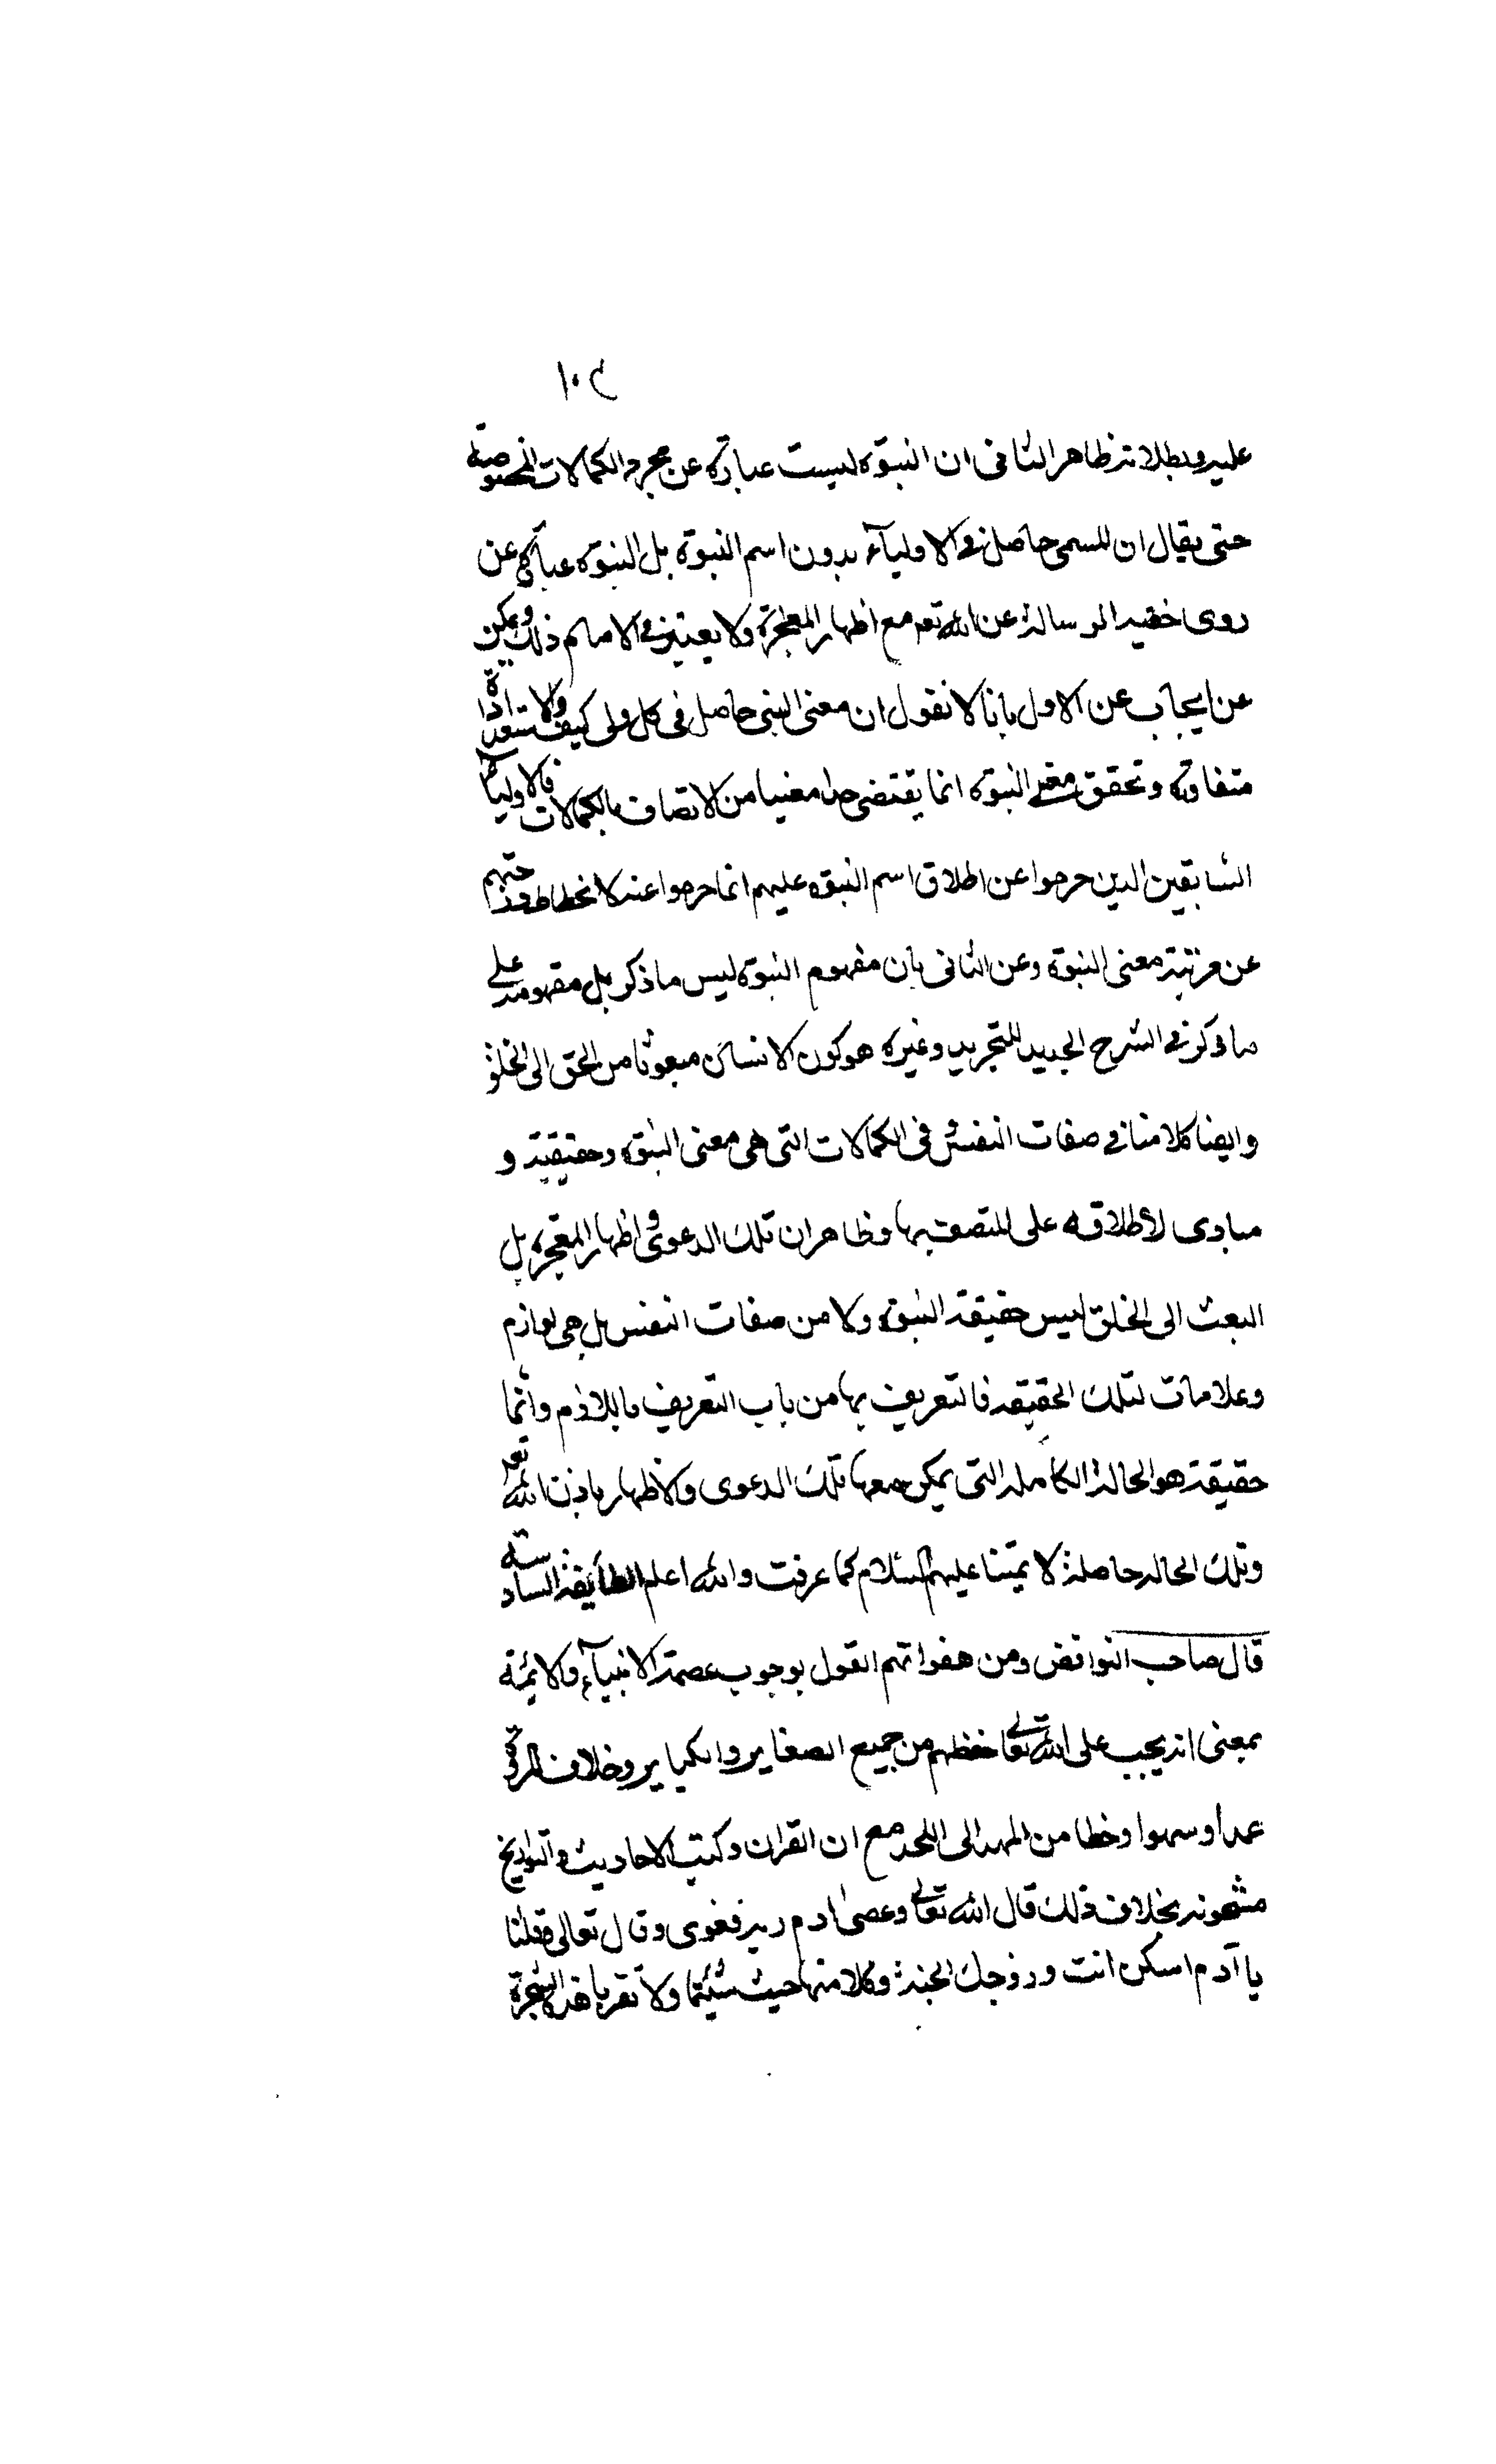 ١٠٤
عليه وبطلانه ظاهر الثاني ان النبوة ليست عبارة عن مجرد الكمالات المخصوصة
حتى يقال ان المسمى حاصل في الاولياء بدون اسم النبوة بل النبوة عبارة عن
دعوى الرسالة عن الله تعه مع اظهار المعجزة ولا يعتبر في الامام ذلك ويمكن
عن ايجاب عن الاول بانا لا نقول ان معنى النبي حاصل في كل ولى كيف والاستعدادات
متفاوتة وتحقق معنى النبوة انما يقتضى حدا معينا من الاتصاف بالكمالات فالاولياء
السابقين الذين حرموا عن اطلاق اسم النبوة عليهم انما حرموا عنه لانحطاط درجتهم
عن مرتبة معنى النبوة وعن الثاني بان مفهوم النبوة ليس ما ذكر بل مفهومه على
ما ذكر في الشرح الجديد للتجريد وغيره هو كون الانسان مبعوثا من الحق الى الخلق
وايضا كلامنا في صفات النفس في الكمالات التي هي معنى النبوة وحقيقته و
مبادى لاطلاقه على المتصف بها وظاهر ان تلك الدعوى واظهار المعجزة بل
البعث الى الخلق ليس حقيقة النبوة ولا من صفات النفس بل هي لوازم
وعلامات لتلك الحقيقة فالتعريف بها من باب التعريف باللازم وانما
حقيقته هو الحالة الكاملة التي يمكن معها تلك الدعوى والاظهار باذن الله تعه
وتلك الحالة حاصلة لائمتنا عليهم السلام كما عرفت والله اعلم الطايفة السادسة
قال صاحب النواقض ومن هفواتهم القول بوجوب عصمة الانبياء والائمة
بمعنى انه يجب على الله تعالى حفظهم من جميع الصغاير والكباير وخلاف المروة
عمدا وسهوا وخطا من المهد الى اللحد مع ان القران وكتب الاحاديث والتواريخ
مشحونة بخلاف ذلك قال الله تعالى وعصى ادم ربه فغوى وقال تعالى وقلنا
يا آدم اسكن انت وزوجك الجنة وكلا منها حيث شئتما ولا تقربا هذه الشجرة